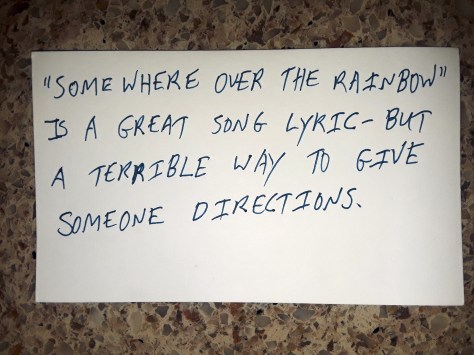 "SOMEWHERE OVER THE RAINBOW"
IS A GREAT SONG LYRIC- BUT
A TERRIBLE WAY TO GIVE
SOMEONE DIRECTIONS.